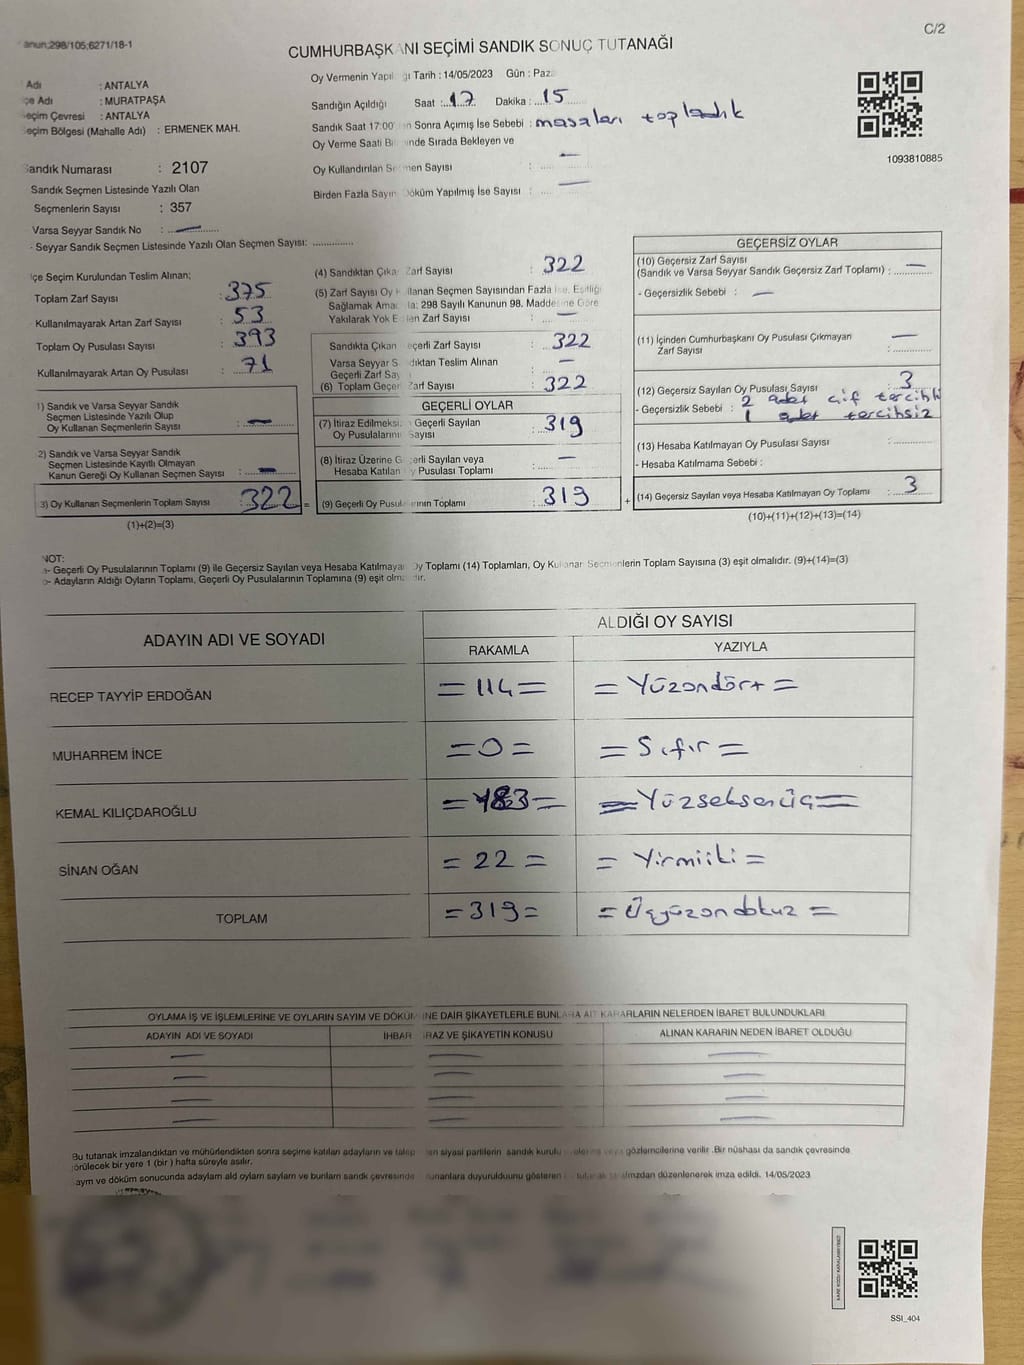 anun;298/105;6271/18-1
C/2
CUMHURBAŞKANI SEÇİMİ SANDIK SONUÇ TUTANAĞI
Adı : ANTALYA
çe Adı : MURATPAŞA
eçim Çevresi : ANTALYA
eçim Bölgesi (Mahalle Adı) : ERMENEK MAH.
Sandık Numarası : 2107
Sandık Seçmen Listesinde Yazılı Olan
Seçmenlerin Sayısı : 357
Varsa Seyyar Sandık No : —
- Seyyar Sandık Seçmen Listesinde Yazılı Olan Seçmen Sayısı: ..............
Oy Vermenin Yapıl ğı Tarih : 14/05/2023 Gün : Paz
Sandığın Açıldığı Saat : 17 Dakika : 15
Sandık Saat 17:00' n Sonra Açımış İse Sebebi : masaları topladık
Oy Verme Saati Bi inde Sırada Bekleyen ve
Oy Kullandırılan Se men Sayısı : —
Birden Fazla Sayım Döküm Yapılmış İse Sayısı : —
1093810885
lçe Seçim Kurulundan Teslim Alınan;
Toplam Zarf Sayısı : 375
Kullanılmayarak Artan Zarf Sayısı : 53
Toplam Oy Pusulası Sayısı : 393
Kullanılmayarak Artan Oy Pusulası : 71
1) Sandık ve Varsa Seyyar Sandık
Seçmen Listesinde Yazılı Olup
Oy Kullanan Seçmenlerin Sayısı : —
2) Sandık ve Varsa Seyyar Sandık
Seçmen Listesinde Kayıtlı Olmayan
Kanun Gereği Oy Kullanan Seçmen Sayısı : —
3) Oy Kullanan Seçmenlerin Toplam Sayısı : 322 =
(1)+(2)=(3)
(4) Sandıktan Çıka Zarf Sayısı : 322
(5) Zarf Sayısı Oy K llanan Seçmen Sayısından Fazla İse, Eşitliği
Sağlamak Ama la; 298 Sayılı Kanunun 98. Maddesine Göre
Yakılarak Yok E len Zarf Sayısı : —
Sandıkta Çıkan eçerli Zarf Sayısı : 322
Varsa Seyyar S dıktan Teslim Alınan
Geçerli Zarf Say : —
(6) Toplam Geçer Zarf Sayısı : 322
GEÇERLİ OYLAR
(7) İtiraz Edilmeksi n Geçerli Sayılan
Oy Pusulalarını Sayısı : 319
(8) İtiraz Üzerine G erli Sayılan veya
Hesaba Katılan y Pusulası Toplamı : —
(9) Geçerli Oy Pusul rının Toplamı : 319 +
GEÇERSİZ OYLAR
(10) Geçersiz Zarf Sayısı
(Sandık ve Varsa Seyyar Sandık Geçersiz Zarf Toplamı) : —
- Geçersizlik Sebebi : —
(11) İçinden Cumhurbaşkanı Oy Pusulası Çıkmayan
Zarf Sayısı : —
(12) Geçersiz Sayılan Oy Pusulası Sayısı : 3
- Geçersizlik Sebebi : 2 adet çif tercihli
1 adet tercihsiz
(13) Hesaba Katılmayan Oy Pusulası Sayısı : ..........
- Hesaba Katılmama Sebebi :
(14) Geçersiz Sayılan veya Hesaba Katılmayan Oy Toplamı : 3
(10)+(11)+(12)+(13)=(14)
NOT:
a- Geçerli Oy Pusulalarının Toplamı (9) ile Geçersiz Sayılan veya Hesaba Katılmayan Oy Toplamı (14) Toplamları, Oy Kullanan Seçmenlerin Toplam Sayısına (3) eşit olmalıdır. (9)+(14)=(3)
b- Adayların Aldığı Oyların Toplamı, Geçerli Oy Pusulalarının Toplamına (9) eşit olmalıdır.
ADAYIN ADI VE SOYADI ALDIĞI OY SAYISI
RAKAMLA YAZIYLA
RECEP TAYYİP ERDOĞAN =114= =Yüzondört=
MUHARREM İNCE =0= =Sıfır=
KEMAL KILIÇDAROĞLU =183= =Yüzseksenüç=
SİNAN OĞAN =22= =Yirmiiki=
TOPLAM =319= =Üçyüzondokuz=
OYLAMA İŞ VE İŞLEMLERİNE VE OYLARIN SAYIM VE DÖKÜMÜNE DAİR ŞİKAYETLERLE BUNLARA AİT KARARLARIN NELERDEN İBARET BULUNDUKLARI
ADAYIN ADI VE SOYADI İHBAR İRAZ VE ŞİKAYETİN KONUSU ALINAN KARARIN NEDEN İBARET OLDUĞU
— — —
— — —
— — —
— — —
Bu tutanak imzalandıktan ve mühürlendikten sonra seçime katılan adayların ve talep en siyasi partilerin sandık kurulu üyelerine veya gözlemcilerine verilir .Bir nüshası da sandık çevresinde
görülecek bir yere 1 (bir ) hafta süreyle asılır.
ayım ve döküm sonucunda adayların aldığı oyların sayıların ve bunların sandık çevresinde unanlara duyurulduunu gösteren tutanak tarafımızdan düzenlenerek imza edildi. 14/05/2023
SSI_404